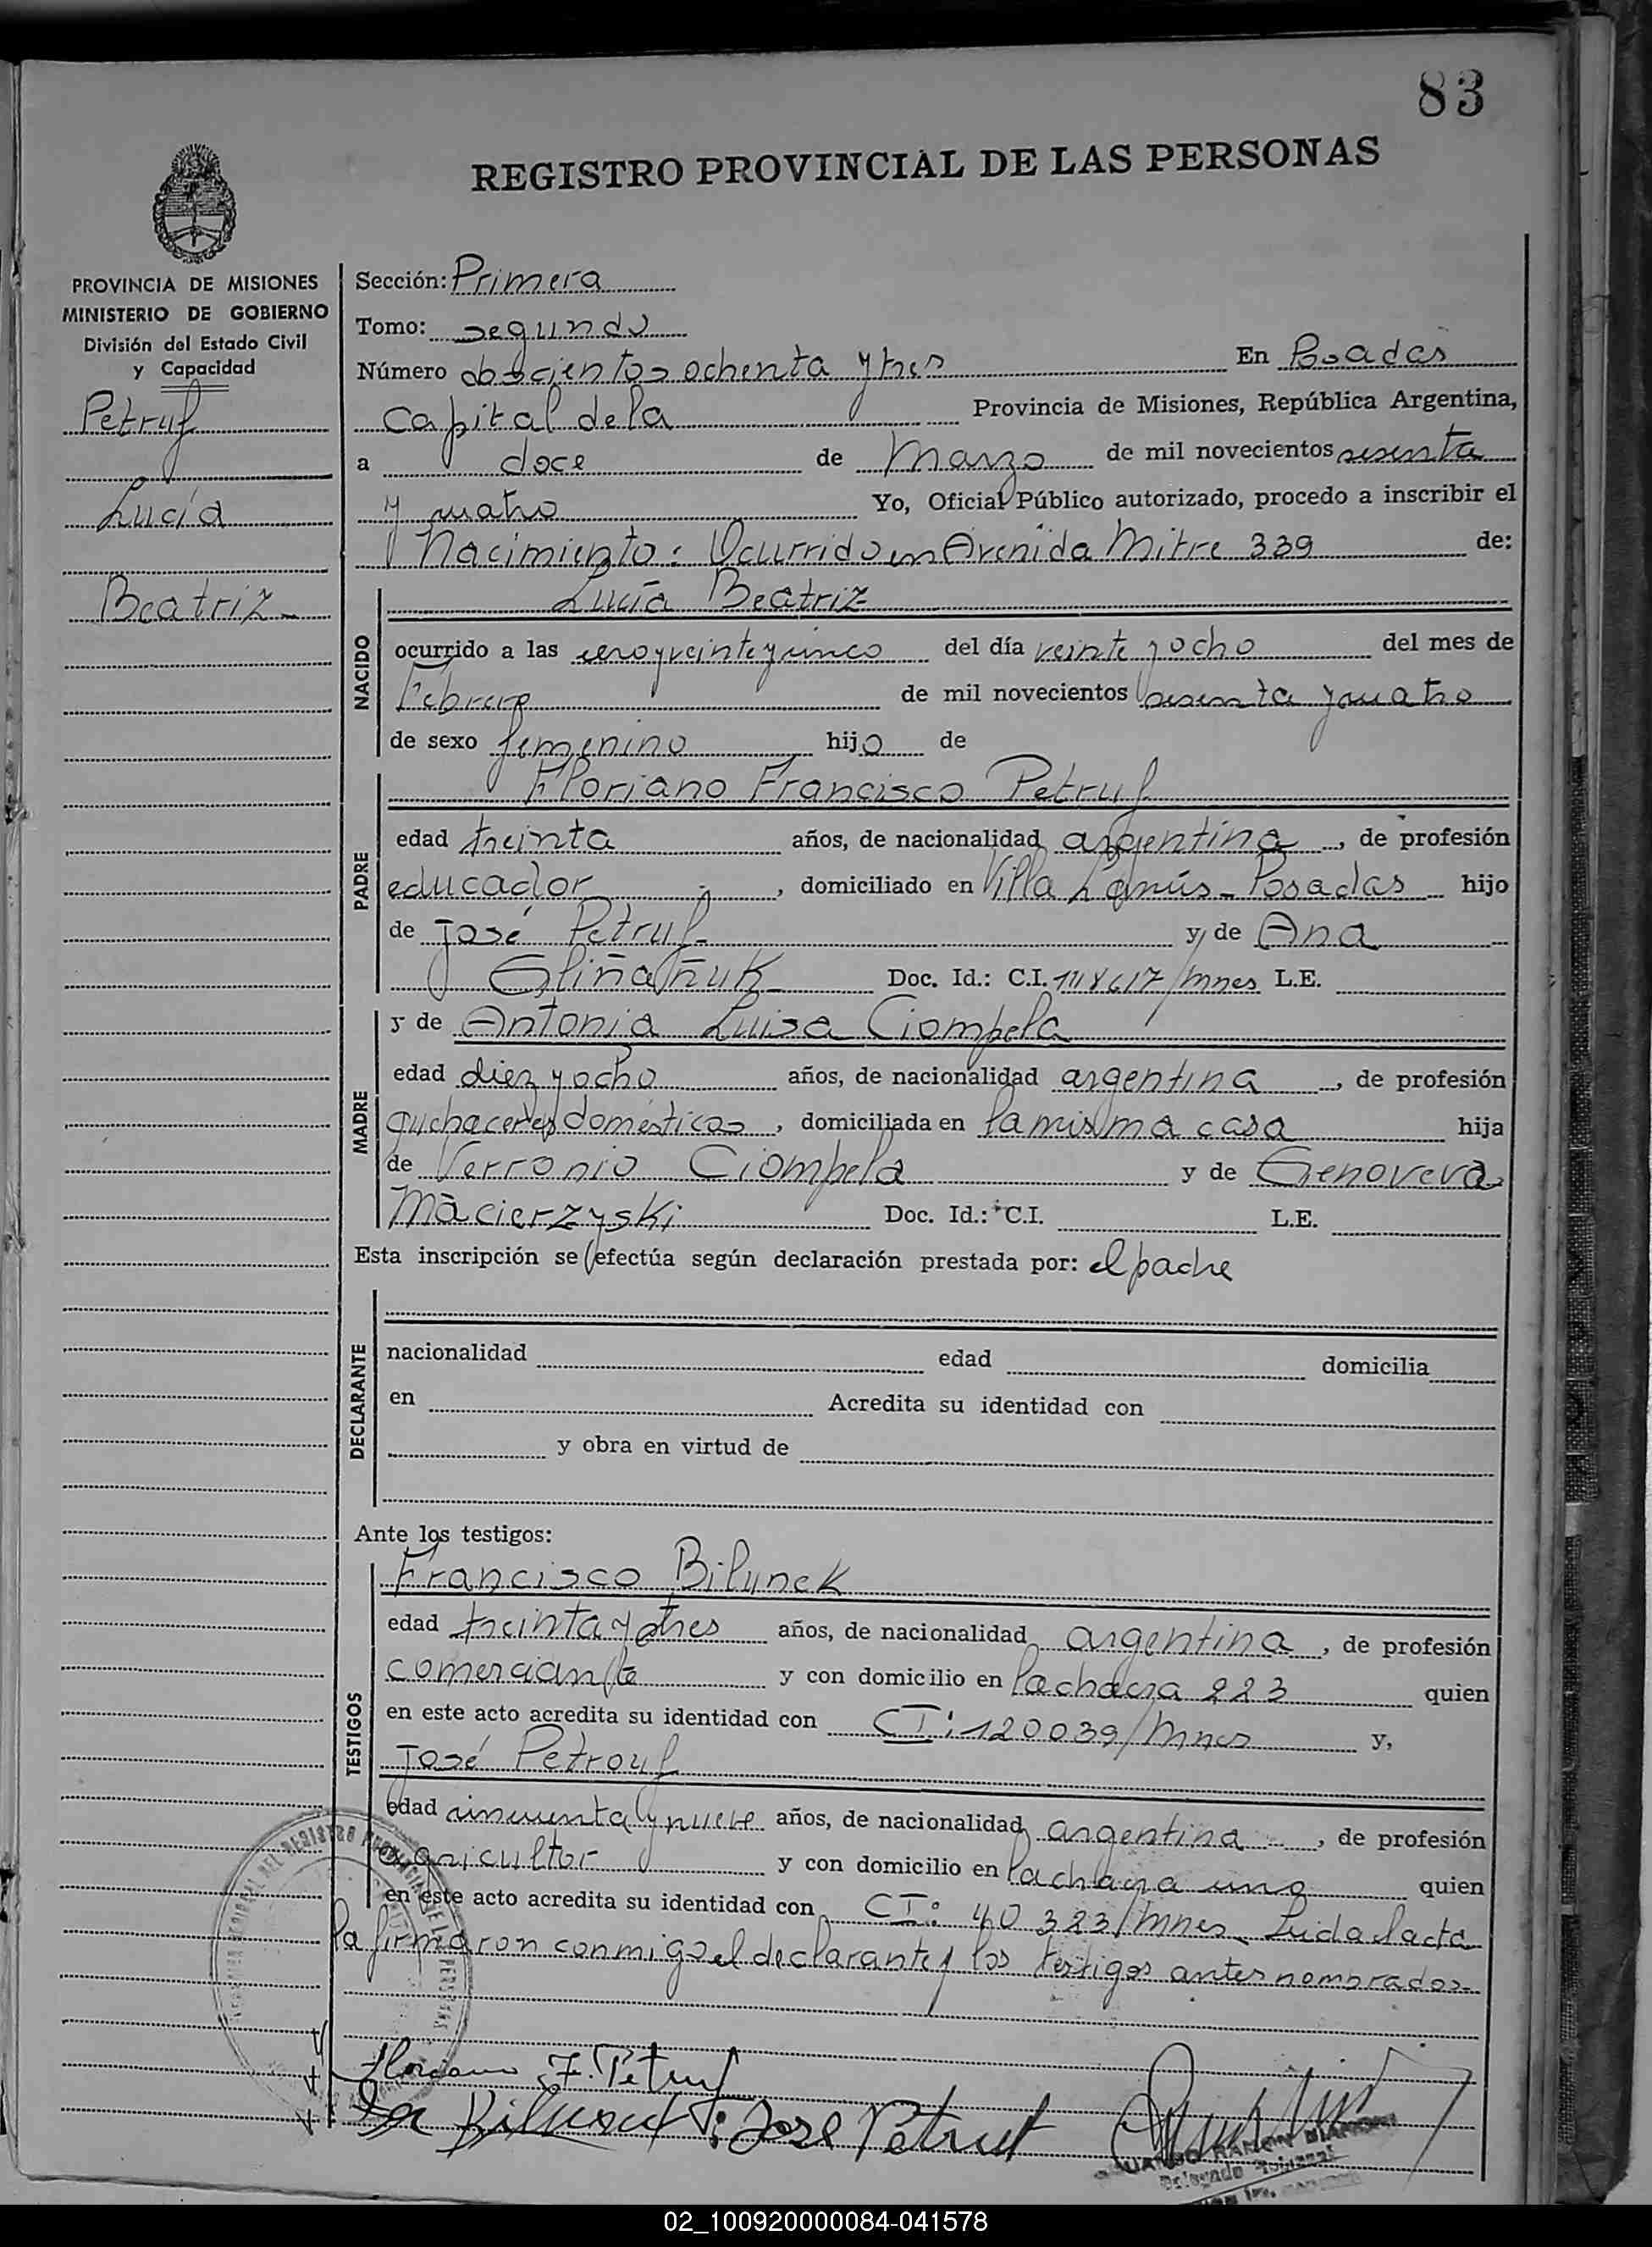 83
REGISTRO PROVINCIAL DE LAS PERSONAS
PROVINCIA DE MISIONES
MINISTERIO DE GOBIERNO
División del Estado Civil
y Capacidad
Petruf
Lucía
Beatriz
Sección: Primera
Tomo: segundo
Número doscientos ochenta y tres En Posadas
Capital de la Provincia de Misiones, República Argentina,
a doce de Marzo de mil novecientos sesenta
y cuatro Yo, Oficial Público autorizado, procedo a inscribir el
Nacimiento: Ocurrido en Avenida Mitre 339 de:
NACIDO
Lucía Beatriz
ocurrido a las cero y veinte y cinco del día veinte y ocho del mes de
Febrero de mil novecientos sesenta y cuatro
de sexo femenino hijo de
PADRE
Floriano Francisco Petruf
edad treinta años, de nacionalidad argentina, de profesión
educador, domiciliado en Villa Lanús - Posadas hijo
de José Petruf y de Ana
Gliñañuk Doc. Id.: C.I. /mnes L.E.
MADRE
y de Antonia Luisa Ciompela
edad diez y ocho años, de nacionalidad argentina, de profesión
quehaceres domésticos, domiciliada en la misma casa hija
de Verronio Ciompela y de Genoveva
Macierzyski Doc. Id.: C.I. L.E.
Esta inscripción se efectúa según declaración prestada por: el padre
DECLARANTE
nacionalidad edad domicilia
en Acredita su identidad con
y obra en virtud de
Ante los testigos:
TESTIGOS
Francisco Bilynek
edad treinta y tres años, de nacionalidad argentina, de profesión
comerciante y con domicilio en la chacra 223 quien
en este acto acredita su identidad con CI: 120039/mnes y,
José Petrouf
edad cincuenta y nueve años, de nacionalidad argentina, de profesión
agricultor y con domicilio en la chacra uno quien
en este acto acredita su identidad con CI: 40323/mnes. Leida el acta
la firmaron conmigo el declarante y los testigos antes nombrados.
F. Petruf
Jose Petruf
RAMON
Delegado
02_100920000084-041578